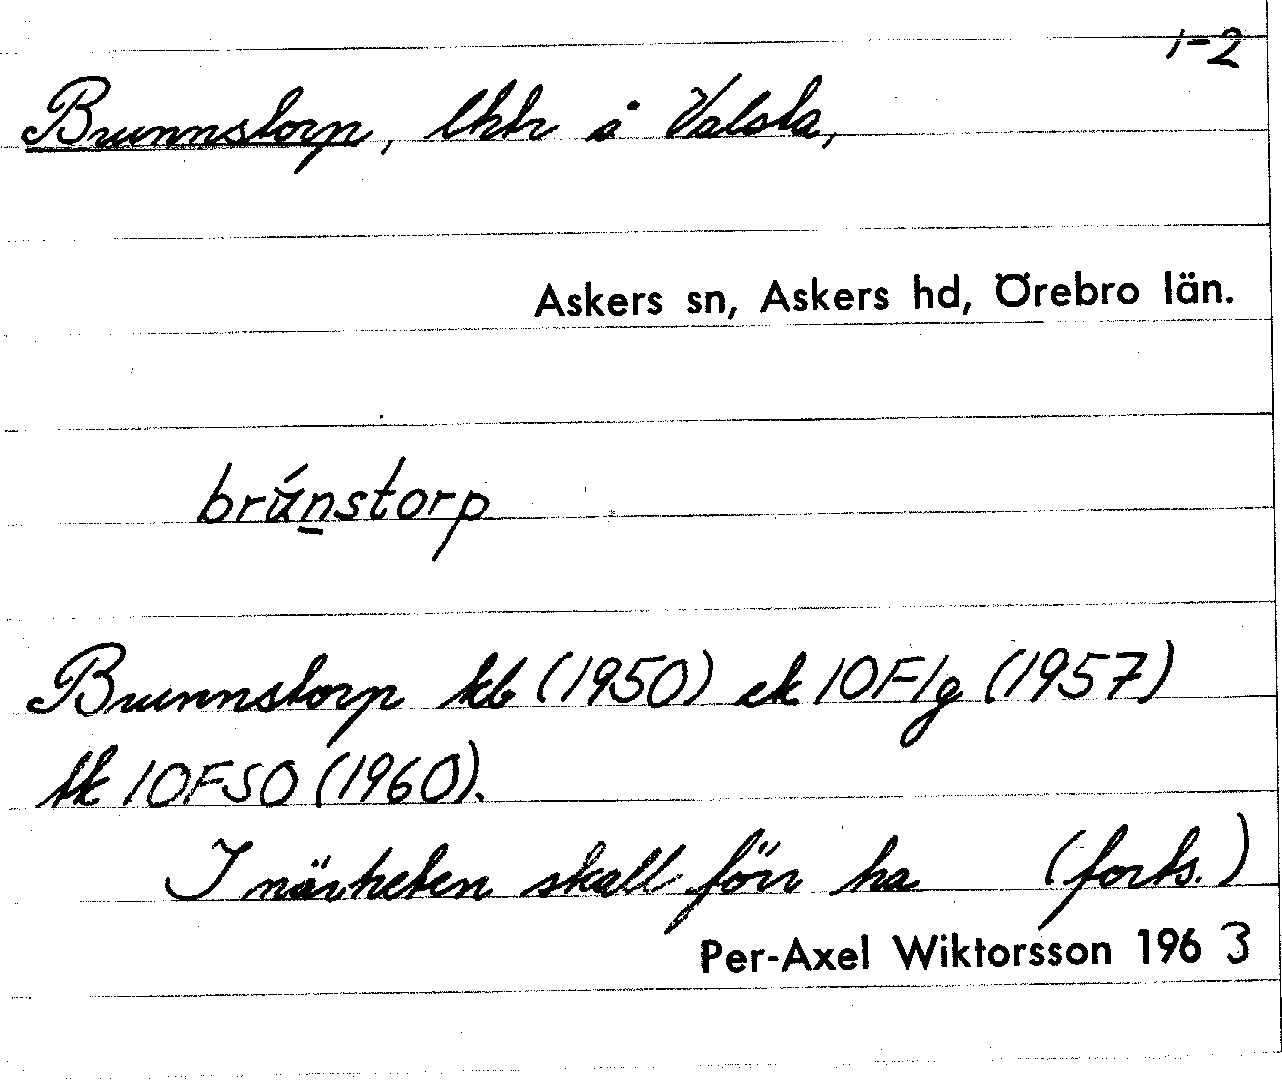 1-2
Brunnstorp, lht å Valsta,
Askers sn, Askers hd, Örebro län.
brúnstorp
Brunnstorp kb (1950) ek 10F1g (1957)
tk 10FSO (1960).
I närheten skall förr ha (forts.)
Per-Axel Wiktorsson 1963